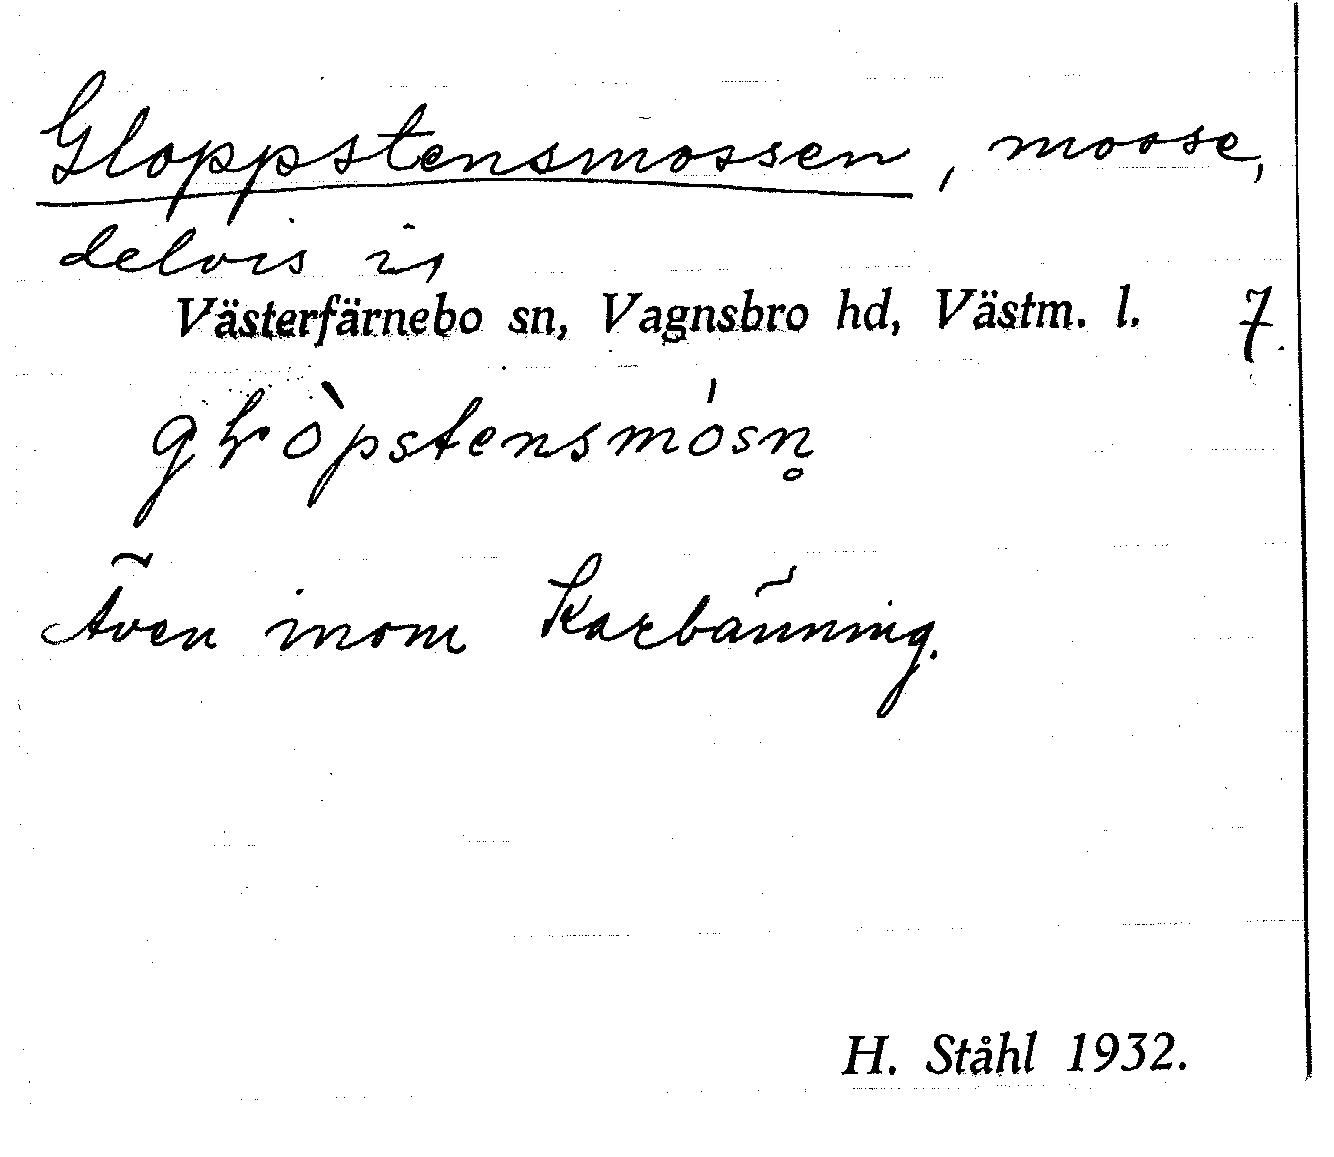 Gloppstensmossen, mosse,
delvis i,
Västerfärnebo sn, Vagnsbro hd, Västm. l. 7
Även inom Karbänning.
H. Ståhl 1932.